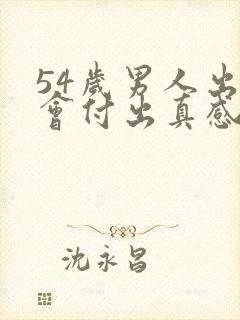 54歲男人出
會付出真感
沈永昌